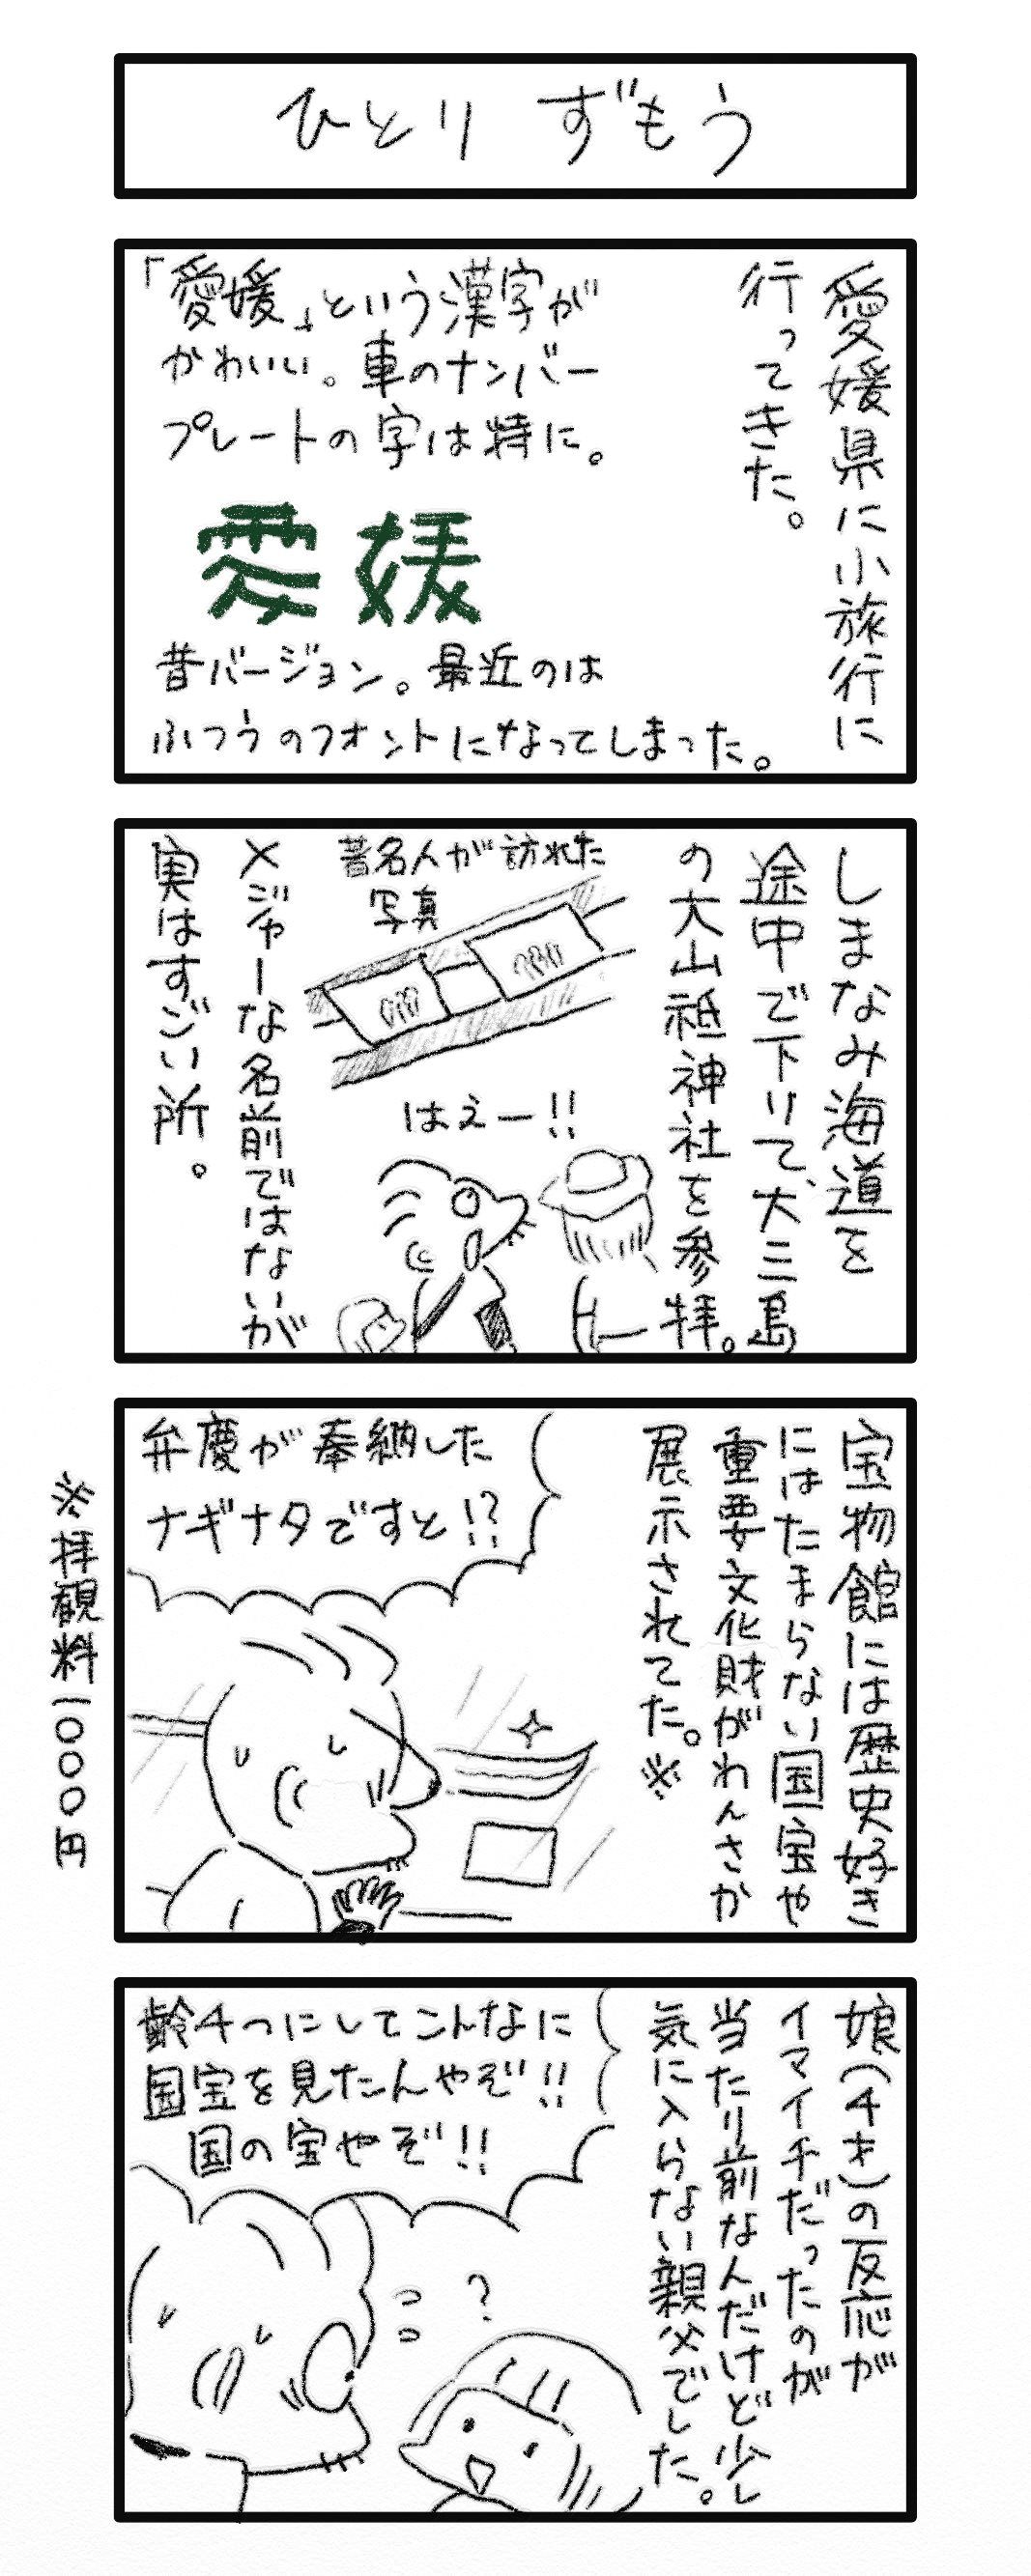 ひとりずもう
愛媛県に小旅行に
行ってきた。
「愛媛」という漢字が
かわいい。車のナンバー
プレートの字は特に。
愛媛
昔バージョン。最近のは
ふつうのフォントになってしまった。
しまなみ海道を
途中で下りて、大三島
の大山祇神社を参拝。
著名人が訪れた
写真
はえー!!
メジャーな名前ではないが
実はすごい所。
宝物館には歴史好き
にはたまらない国宝や
重要文化財がわんさか
展示されてた。※
弁慶が奉納した
ナギナタですと!?
※拝観料一〇〇〇円
娘(4才)の反応が
イマイチだったのが
当たり前なんだけど少し
気に入らない親父でした。
齢4つにしてこんなに
国宝を見たんやぞ!!
国の宝やぞ!!
?